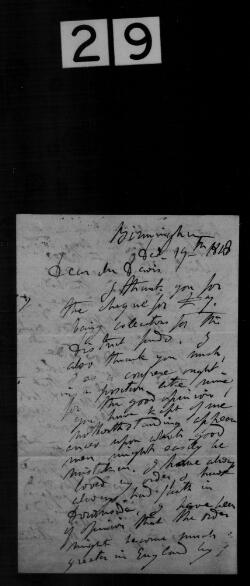 29
Birmingham
Dec. 19th 1848
Dear Mr Davis
I thank you for
the cheque for £7.
being collection for the
District funds. I
also thank you much
as a confrere ought,
in a position like mine
for the good opinion
you have kept of me
notwithstanding appear
ances upon which good
men might easily be
mistaken. I have always
loved my Order & must
always had faith in
I have been
of opinion that the order
might become much
greater in England by